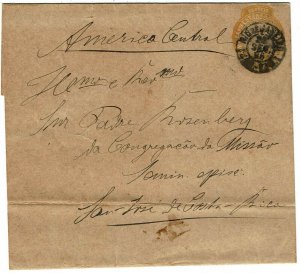 America Central
Illmo e Revmo
Snr Padre Rosenberg
da Congregação da Missão
Semin. episc.
San José de Costa-Rica